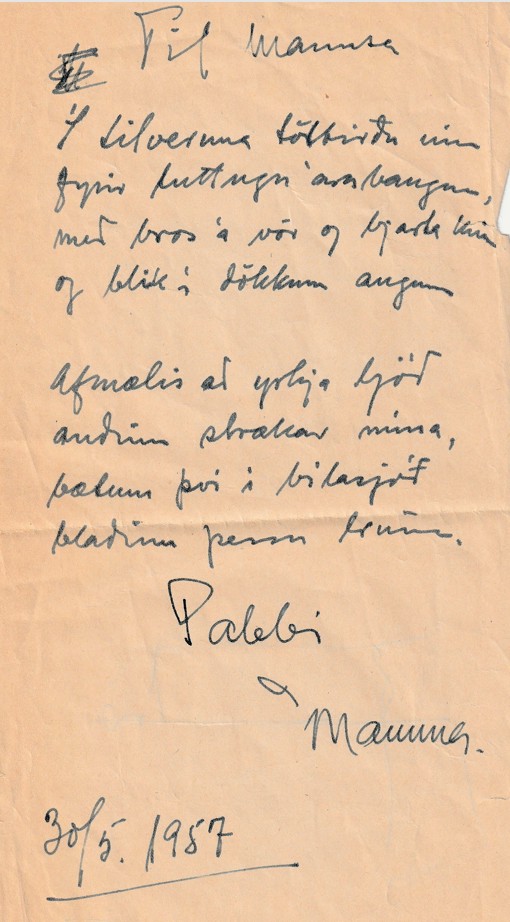 Til
Í tilveruna töltirðu inn
fyrir tuttugu ára baugum,
með bros á vör og bjarta kinn
og blik í dökkum augum
Afmælis að yrkja ljóð
andinn strækar núna,
bætum því í bílasjóð
blaðinu þessu brúna.
Pabbi
&
Mamma.
30/5. 1957